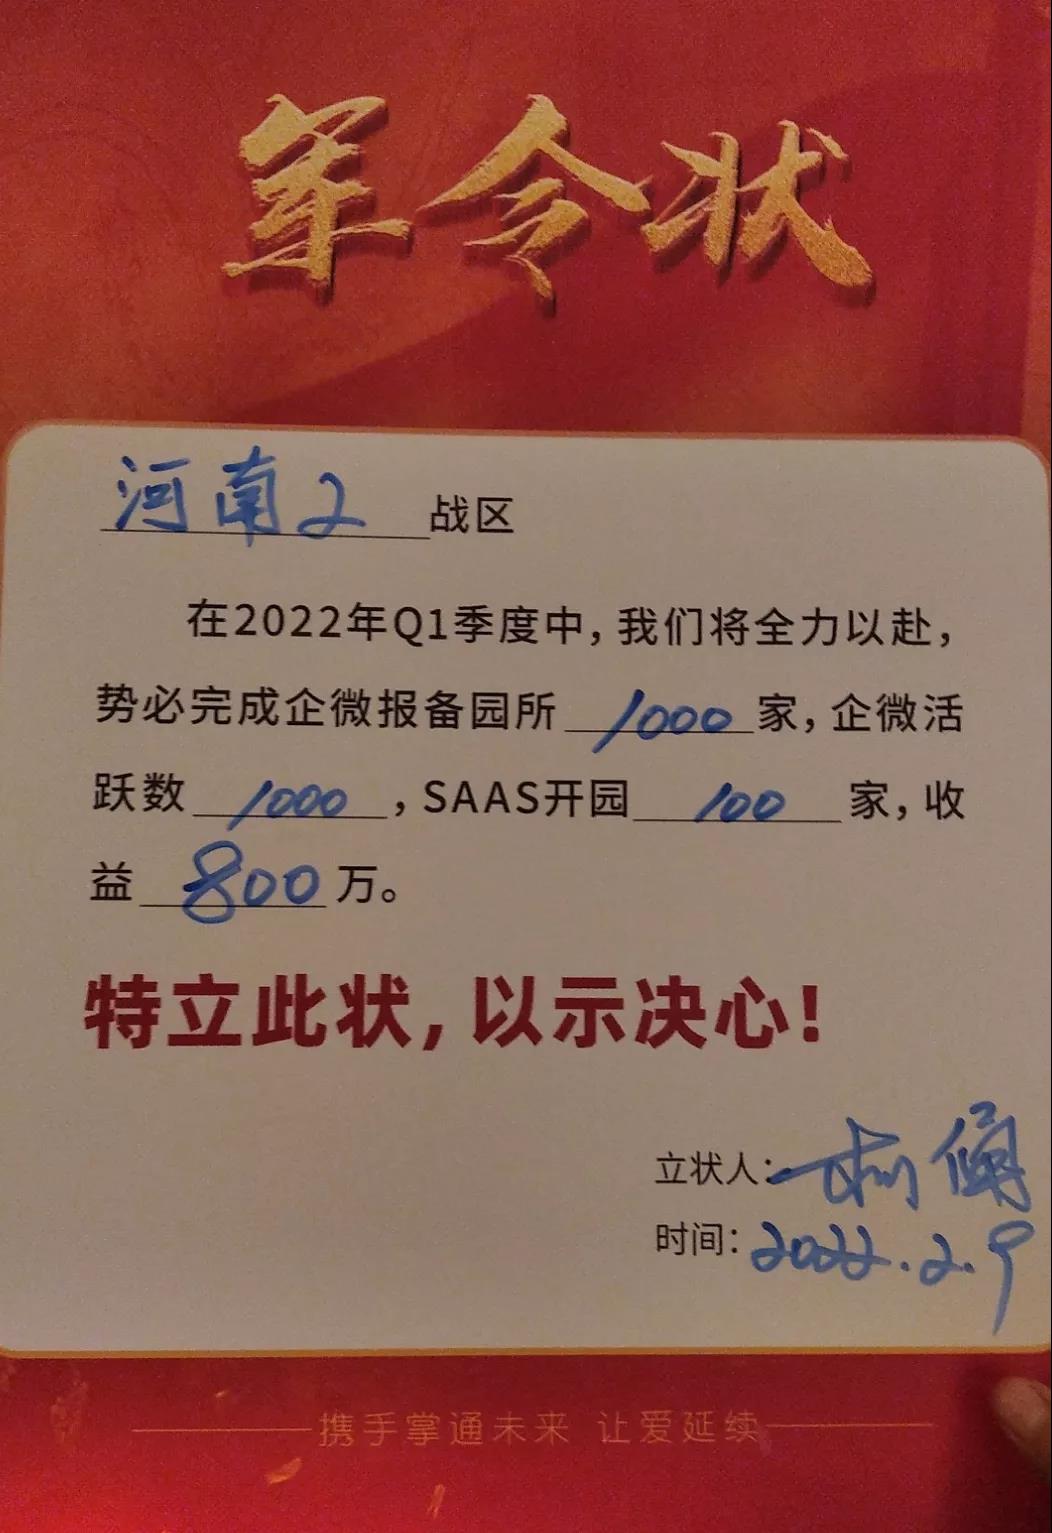 军令状
河南2战区
在2022年Q1季度中，我们将全力以赴，
势必完成企微报备园所1000家，企微活
跃数1000，SAAS开园100家，收
益800万。
特立此状，以示决心!
立状人：
时间：2022.2.9
携手掌通未来 让爱延续